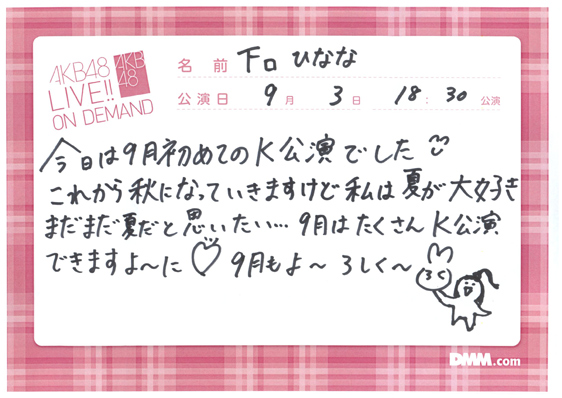 AKB48
LIVE!!
ON DEMAND
AKB
48
名前 下口ひなな
公演日 9月 3日 18:30 公演
今日は9月初めてのK公演でした
これから秋になっていきますけど私は夏が大好き
まだまだ夏だと思いたい… 9月はたくさんK公演
できますよ〜に♡ 9月もよ〜ろしく〜
ろく
DMM.com